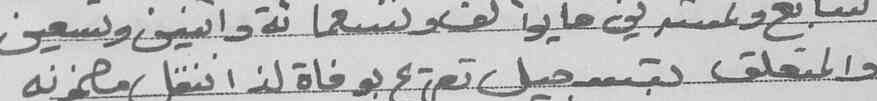 سابع وعشرين مايو ألف وتسعمائة واثنين وتسعين
والمتعلق بتسجيل تصريح بوفاة لذا انتقل مضمونه